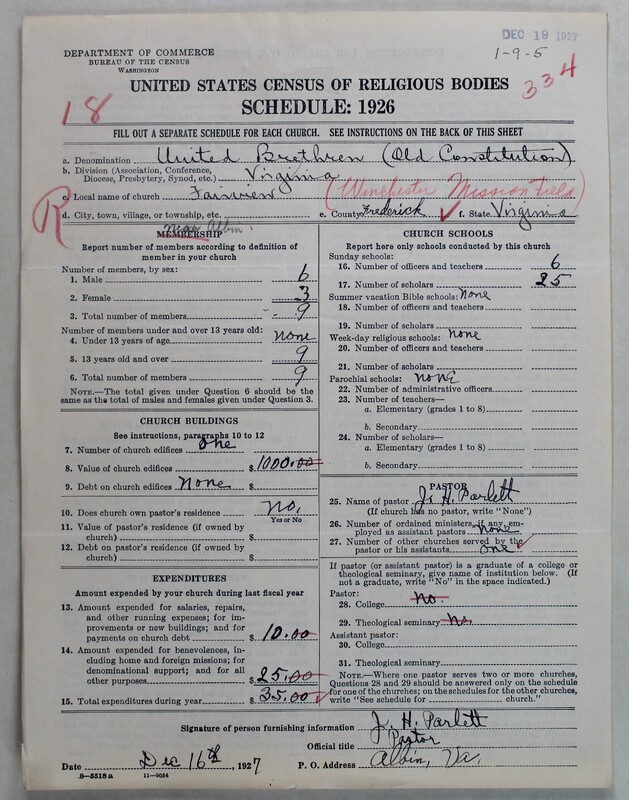 DEC 19 1927
1-9-5
334
DEPARTMENT OF COMMERCE
BUREAU OF THE CENSUS
WASHINGTON
18
UNITED STATES CENSUS OF RELIGIOUS BODIES
SCHEDULE: 1926
FILL OUT A SEPARATE SCHEDULE FOR EACH CHURCH. SEE INSTRUCTIONS ON THE BACK OF THIS SHEET
a. Denomination United Brethren (Old Constitution)
b. Division (Association, Conference, Diocese, Presbytery, Synod, etc.) Virginia
c. Local name of church Fairview (Winchester Mission Field)
R
d. City, town, village, or township, etc. near Albin. e. County Frederick f. State Virginia
MEMBERSHIP
Report number of members according to definition of
member in your church
Number of members, by sex:
1. Male 6
2. Female 3
3. Total number of members 9
Number of members under and over 13 years old:
4. Under 13 years of age None
5. 13 years old and over 9
6. Total number of members 9
NOTE.—The total given under Question 6 should be
same as the total of males and females given under Question 3.
CHURCH BUILDINGS
See instructions, paragraphs 10 to 12
7. Number of church edifices One
8. Value of church edifices $ 1000.00
9. Debt on church edifices None $
10. Does church own pastor's residence No.
Yes or No
11. Value of pastor's residence (if owned by
church) $
12. Debt on pastor's residence (if owned by
church) $
EXPENDITURES
Amount expended by your church during last fiscal year
13. Amount expended for salaries, repairs,
and other running expenses; for im-
provements or new buildings; and for
payments on church debt $ 10.00
14. Amount expended for benevolences, in-
cluding home and foreign missions; for
denominational support; and for all
other purposes $ 25.00
15. Total expenditures during year $ 35.00
CHURCH SCHOOLS
Report here only schools conducted by this church
Sunday schools:
16. Number of officers and teachers 6
17. Number of scholars 25
Summer vacation Bible schools: None
18. Number of officers and teachers
19. Number of scholars
Week-day religious schools: None
20. Number of officers and teachers
21. Number of scholars
Parochial schools: None
22. Number of administrative officers
23. Number of teachers—
a. Elementary (grades 1 to 8)
b. Secondary
24. Number of scholars—
a. Elementary (grades 1 to 8)
b. Secondary
PASTOR
25. Name of pastor J. H. Parlett
(If church has no pastor, write "None")
26. Number of ordained ministers, if any, em-
ployed as assistant pastors None
27. Number of other churches served by the
pastor or his assistants One
If pastor (or assistant pastor) is a graduate of a college or
theological seminary, give name of institution below. (If
not a graduate, write "No" in the space indicated.)
Pastor:
28. College No.
29. Theological seminary No.
Assistant pastor:
30. College
31. Theological seminary
NOTE.—Where one pastor serves two or more churches,
Questions 28 and 29 should be answered only on the schedule
for one of the churches; on the schedules for the other churches,
write "See schedule for church."
Signature of person furnishing information J. H. Parlett
Official title Pastor
Date Dec 16th, 1927 P. O. Address Albin, Va.
8-5518a 11-9034